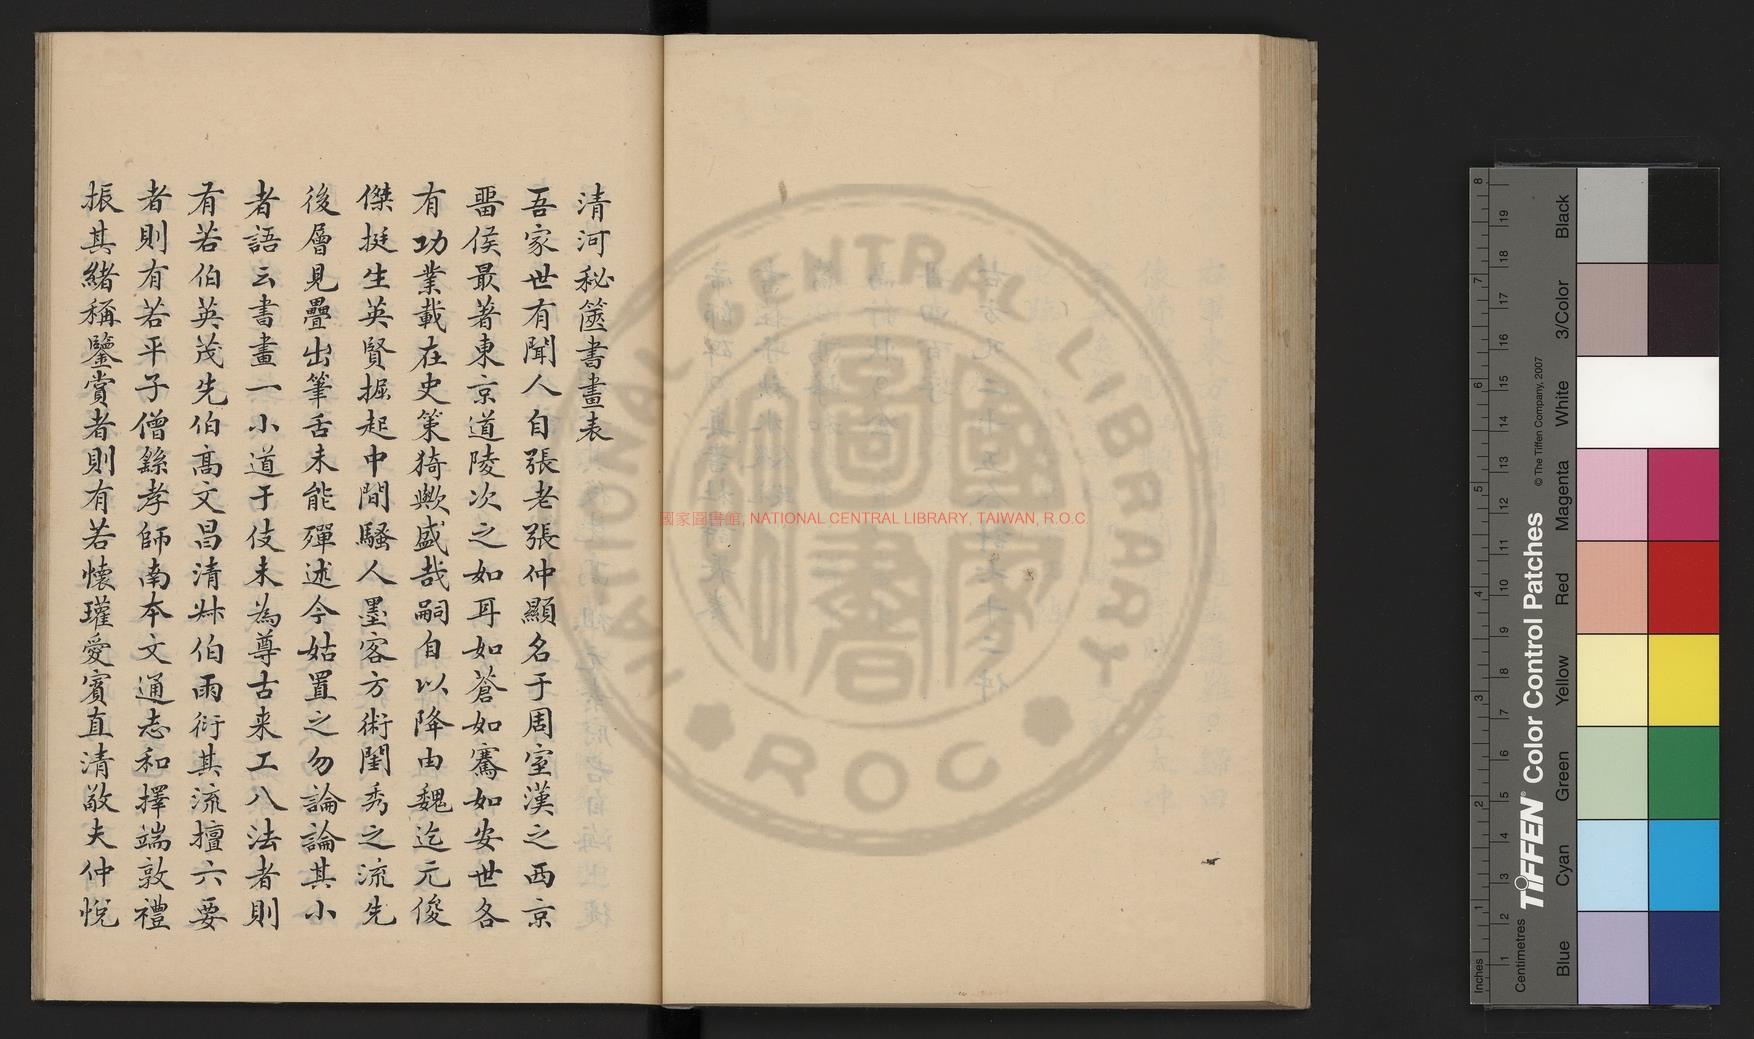 清河秘篋書畫表
吾家世有聞人自張老張仲顯名于周室漢之西京
畱侯最著東京道陵次之如耳如蒼如騫如安世各
有功業載在史策猗歟盛哉嗣自以降由魏迄元俊
傑挺生英賢掘起中間騷人墨客方術閨秀之流先
後層見疊出筆舌未能殫述今姑置之勿論論其小
者語云書畫一小道于伎未為尊古来工八法者則
有若伯英茂先伯高文昌清尗伯雨衍其流擅六要
者則有若平子僧繇孝師南本文通志和擇端敦禮
振其緒稱鑒賞者則有若懷瓘愛賓直清敬夫仲悅
國家圖書館, NATIONAL CENTRAL LIBRARY, TAIWAN, R.O.C.
NATIONAL CENTRAL LIBRARY
ROC
國家圖書館
TIFFEN® Color Control Patches
© The Tiffen Company, 2007
Inches
1 2 3 4 5 6 7 8
Centimetres
1 2 3 4 5 6 7 8 9 10 11 12 13 14 15 16 17 18 19
Blue Cyan Green Yellow Red Magenta White 3/Color Black